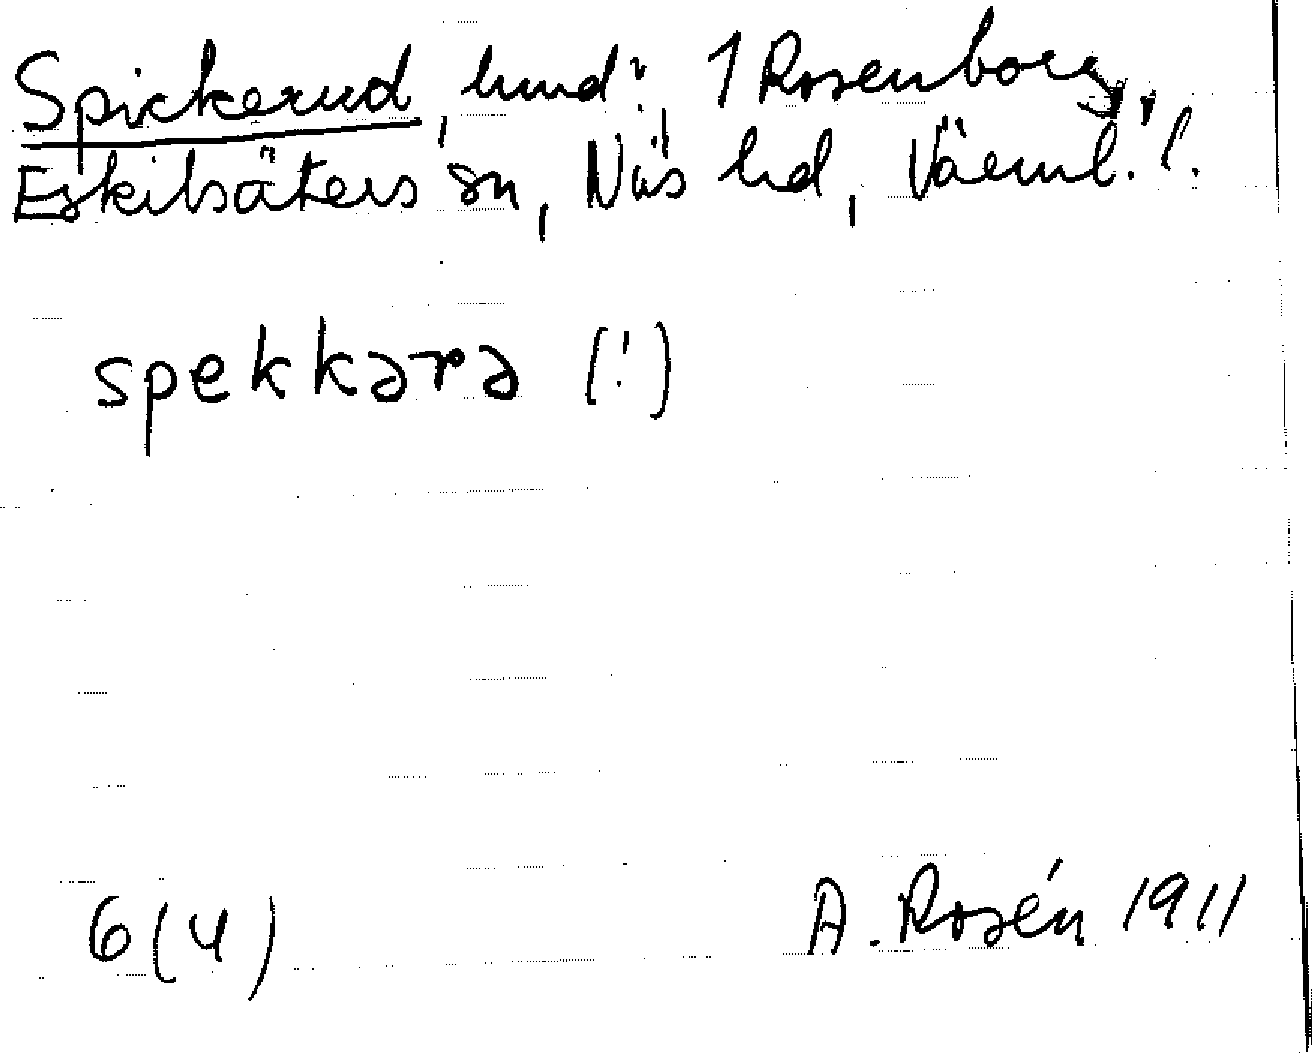 Spickerud, lund: 1 Rosenborg,
Eskilsäters sn, Näs hd, Värml. l.
spekkərə (!)
6(4)
A. Rosén 1911